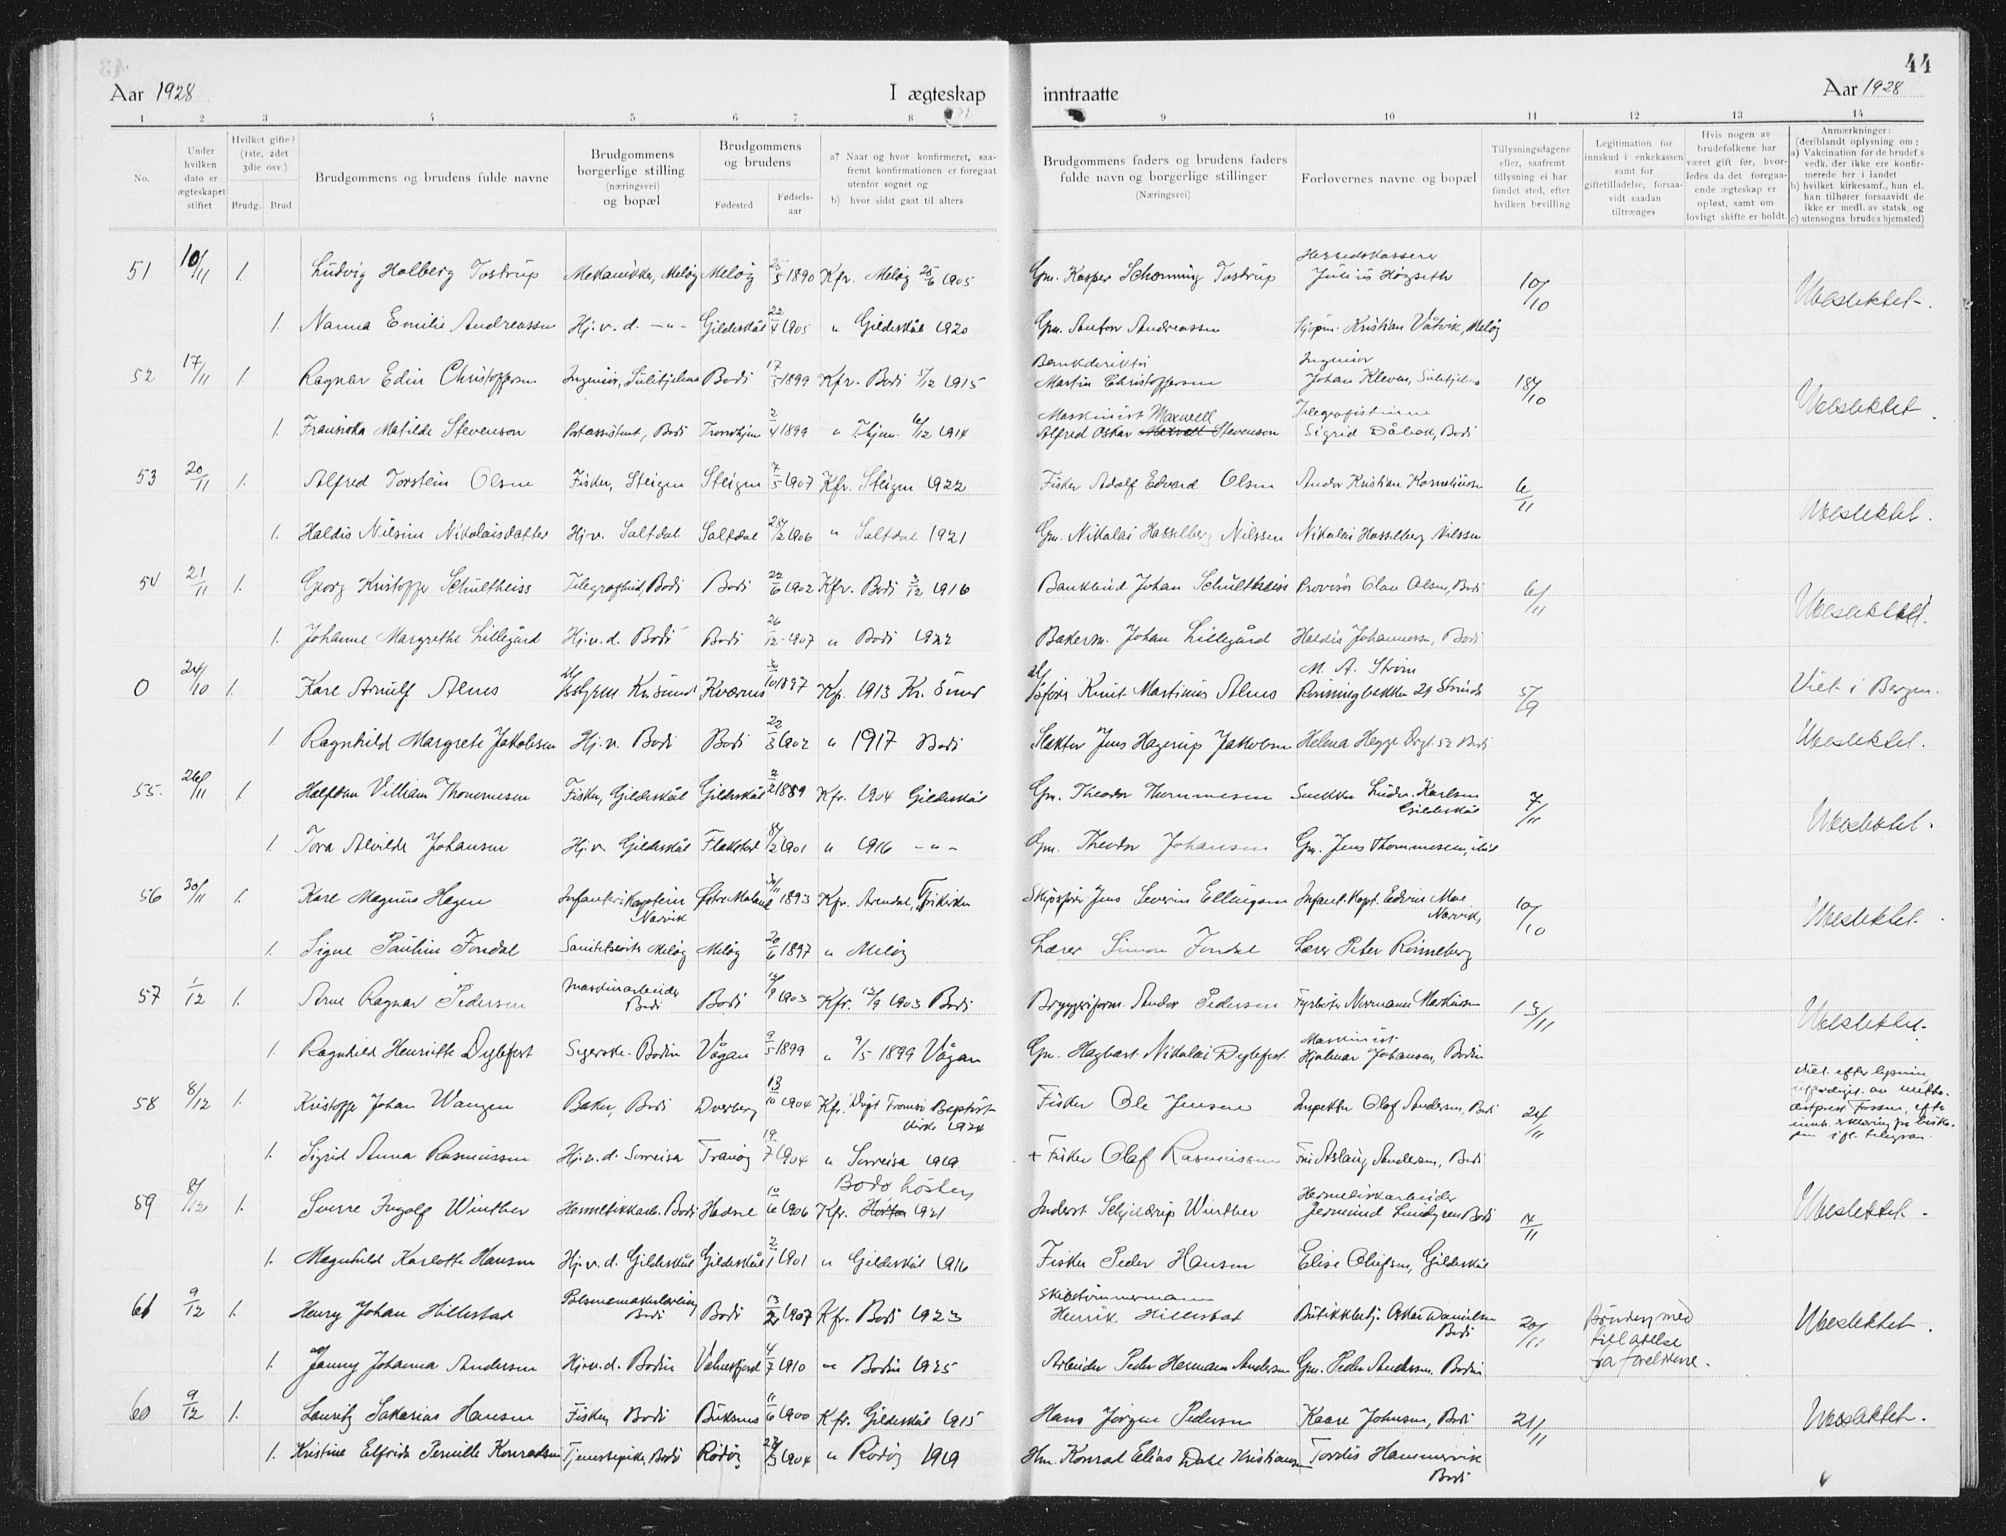 44
Aar 1928 I ægteskap inntraatte Aar 1928
1 2 3 4 5 6 7 8 9 10 11 12 13 14
No.
Under hvilken dato er ægteskapet stiftet
Hvilket gifte? (1ste, 2det 3die osv.)
Brudg. Brud
Brudgommens og brudens fulde navne
Brudgommens borgerlige stilling (næringsvei) og bopæl
Brudgommens og brudens
Fødested Fødsels-aar
a) Naar og hvor konfirmeret, saafremt konfirmationen er foregaat utenfor sognet og
b) hvor sidst gaat til alters
Brudgommens faders og brudens faders fulde navn og borgerlige stillinger (Næringsvei)
Forlovernes navne og bopæl
Tillysningsdagene eller, saafremt tillysning ei har fundet sted, efter hvilken bevilling
Legitimation for innskud i enkekassen samt for giftetilladelse, forsaavidt saadan tiltrænges
Hvis nogen av brudefolkene har været gift før, hvorledes da det foregaaende ægteskap er opløst, samt om lovligt skifte er holdt.
Anmærkninger: (deriblandt oplysning om: a) Vakcination for de brudef.s vedk. der ikke ere konfirmerede her i landet b) hvilket kirkesamf., hun el. han tilhører forsaavidt de ikke er medl. av statsk. og c) utensogns brudes hjemsted)
51 10/11 1. Ludvig Holberg Tostrup Mekanikker, Meløy Meløy 1890 Kfr. Meløy 25/6 1905 Gm. Kasper Schønning Tostrup Herredskasserer Julius Høgseth 10/10 Ubeslektet.
1. Nanna Emilie Andreassen Hj.v. d. -"- Gildeskål 22/4 1905 " Gildeskål 1920 Gm. Anton Andreassen Kjøpm. Kristian Våtvik, Meløy
52 17/11 1. Ragnar Edin Christoffersen Ingeniør, Sulitjelma Bodø 17/5 1899 Kfr. Bodø 5/12 1915 Bankdirektør Martin Christoffersen Ingeniør Johan Kleven, Sulitjelma 18/10 Ubeslektet.
1. Fransiska Matilde Stevenson Postassistent, Bodø Trondhjem 2/4 1899 " T.hjem 6/12 1914 Maskinist Maxwell Alfred Oskar Stevenson Telegrafistinne Sigrid Dåbak, Bodø
53 20/11 1. Alfred Torstein Olsen Fisker, Steigen Steigen 7/5 1907 Kfr. Steigen 1922 Fisker Adolf Edvard Olsen Andor Kristian Korneliussen 6/11 Ubeslektet.
1. Haldis Nilsine Nikolaisdatter Hj.v. Saltdal Saltdal 28/2 1906 " Saltdal 1921 Gm. Nikolai Hasselberg Nilssen Nikolai Hasselberg Nilssen
54 21/11 1. Georg Kristoffer Schultheiss Telegrafbud, Bodø Bodø 22/6 1902 Kfr. Bodø 3/12 1916 Bankbud Johan Schultheiss Provisor Olav Olsen, Bodø 6/11 Ubeslektet.
1. Johanne Margrethe Lillegård Hj.v.d. Bodø Bodø 26/12 1907 " Bodø 1922 Bakerm. Johan Lillegård Haldis Johannessen, Bodø
0 24/10 1. Kare Arnulf Alnes Kr.sund Kværnes 1897 Kfr. 1913 Kr. Sund Knut Martinus Alnes M. A. Strøm 29 Strinda 5/9 Viet i Bergen.
1. Ragnhild Margrete Jakobsen Hj.v. Bodø Bodø 22/3 1902 " 1917 Bodø Slakter Jens Hagerup Jakobsen Helena Hegge Bodø Ubeslektet.
55. 26/11 1. Halfdan Villiam Thommesen Fisker, Gildeskål Gildeskål 2/2 1889 Kfr. 1904 Gildeskål Gm. Theodor Thommesen Snekker Karlsen Gildeskål 7/11 Ubeslektet.
1. Tora Alvilde Johansen Hj.v. Gildeskål Flakstad 8/2 1901 " 1916 -"- Gm. Theodor Johansen Gm. Jens Thommesen,
56 30/11 1. Kare Magnus Hagen Infanterikaptein Narvik Østre Moland 30/11 1893 Kfr. Arendal, Frikirken Skipsfører Jens Severin Ellingsen Infant.kapt. Edvin Moe Narvik, 10/10 Ubeslektet.
1. Signe Pauline Fondal Meløy Meløy 20/6 1897 " Meløy Lærer Simon Fondal Lærer Peter Rønneberg
57 1/12 1. Arne Ragnar Pedersen Maskinarbeider Bodø Bodø 12/9 1903 Kfr. 12/9 1903 Bodø Bryggeriform. Andor Pedersen Fyrbøter Normann Markussen 13/11 Ubeslektet.
1. Ragnhild Henriette Dybfest Bodin Vågan 9/5 1899 " 9/5 1899 Vågan Gm. Hagbart Nikolai Dybfest Maskinist Hjalmar Johansen, Bodin
58 8/12 1. Kristoffer Johan Wangen Baker, Bodø Dverberg 13/10 1904 Kfr. Døpt Tromsø Baptistkirke 1924 Fisker Ole Jensen Inspektør Olaf Andersen, Bodø 24/11 Viet efter lysning
1. Sigrid Anna Rasmussen Hj.v.d. Sørreisa Tranøy 19/7 1904 " Sørreisa 1919 + Fisker Olaf Rasmussen Frk Aslaug Andersen, Bodø
59 8/12 1. Sverre Ingolf Winther Hermetikkarb. Bodø Hadsel 10/6 1906 Kfr. Bodø høsten 1921 Schjelderup Winther Hermetikkarbeider Jermund Lindgren Bodø 14/11 Ubeslektet.
1. Magnhild Karlotte Hansen Hj.v.d. Gildeskål Gildeskål 2/1 1901 " Gildeskål 1916 Fisker Peder Hansen Elise Olufsen, Gildeskål
61 9/12 1. Henry Johan Hillestad Bodø Bodø 1907 Kfr. Bodø 1923 Skibstømmermann Henrik Hillestad Butikkbetj. Oskar Danielsen Bodø 20/11 med tillatelse fra foreldrene. Ubeslektet.
1. Jenny Johanna Andersen Hj.v.d. Bodin Valnesfjord 4/7 1910 " Bodin 1925 Arbeider Peder Hermann Andersen Gm. Peder Andersen, Bodin
60 9/12 1. Lauritz Sakarias Hansen Fisker, Bodø Buksnes 11/6 1900 Kfr. Gildeskål 1915 Hans Jørgen Pedersen Kaare Johnsen, Bodø 21/11 Ubeslektet.
1. Kristine Elfrida Pernille Konradsen Tjenestepike, Bodø Rødøy 1904 " Rødøy 1919 Hm. Konrad Elias Dahl Kristiansen Tordis Hammervik Bodø